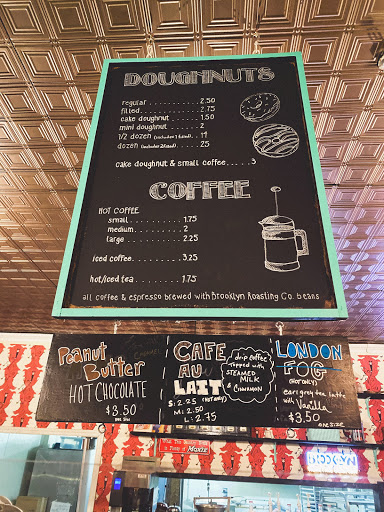 DOUGHNUTS
regular . . . . . . . . . 2.50
filled . . . . . . . . . . 2.75
cake doughnut . . . . 1.50
mini doughnut . . . . . 2
1/2 dozen (includes 1 filled) . . .
dozen (includes 2 filled) . . . . . 25
cake doughnut & small coffee . . . . . 3
COFFEE
HOT COFFEE
small . . . . . . . . . 1.75
medium . . . . . . . . 2
large . . . . . . . . . 2.25
iced coffee . . . . . . . . 3.25
hot/iced tea . . . . . . . . 1.75
all coffee & espresso brewed with Brooklyn Roasting Co. beans
Peanut
Butter
HOT CHOCOLATE
$3.50
ONE SIZE
CAFE
AU
LAIT
drip coffee
topped with
STEAMED
MILK
& CINNAMON
(HOT ONLY)
S: 2.25
M: 2.50
L: 2.75
LONDON
FOG
(HOT ONLY)
earl grey tea latte
with Vanilla
$3.50
ONE SIZE
Moxie